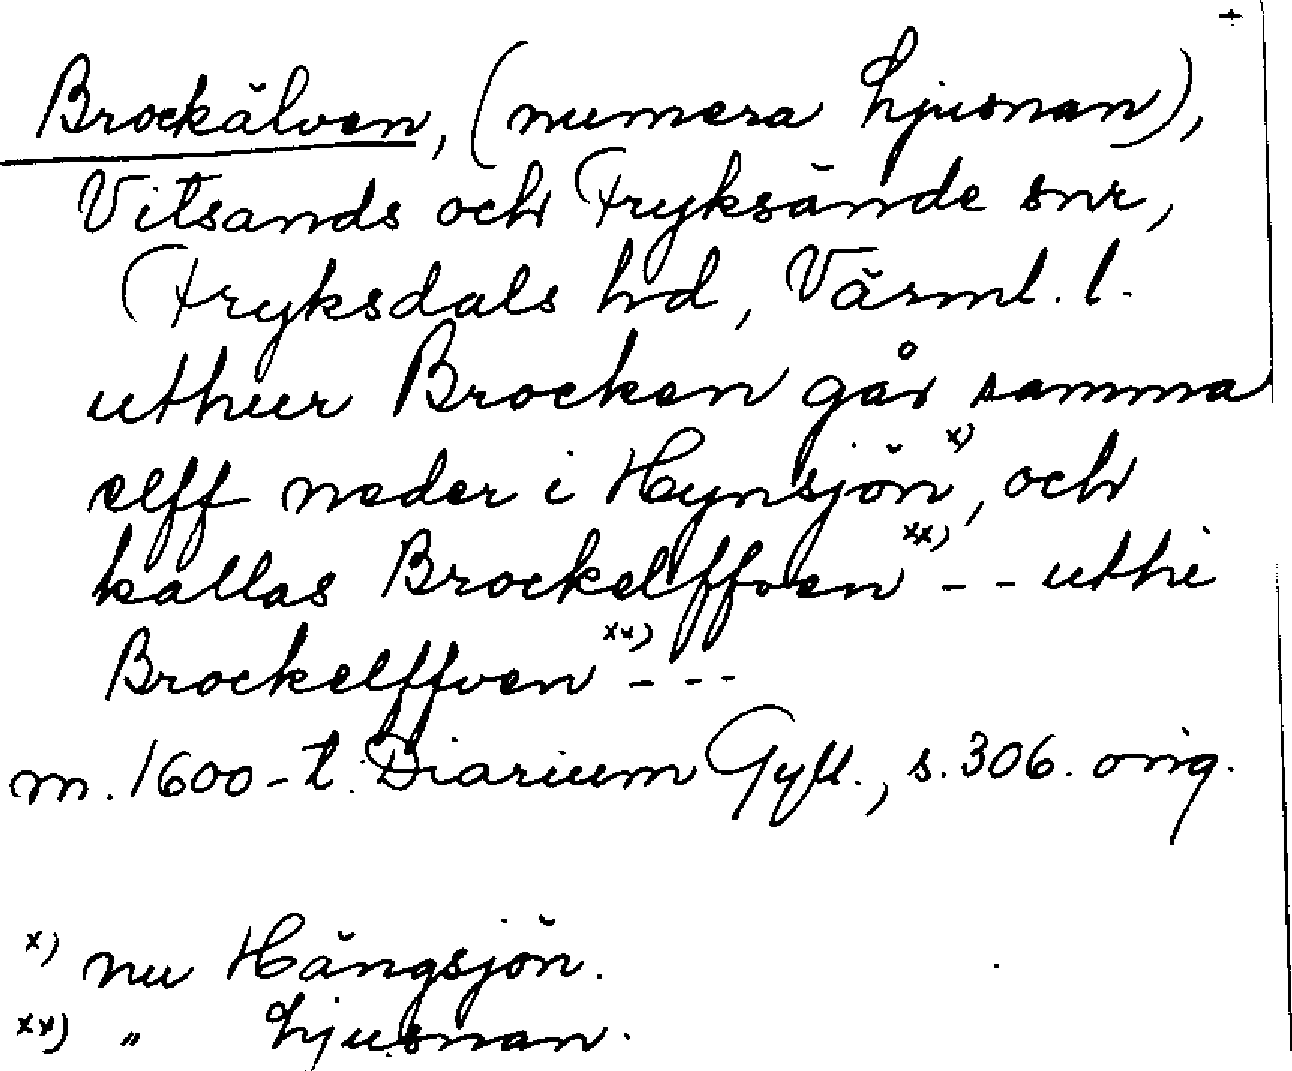 +
Brockälven, (numera Ljusnan),
Vitsands och Fryksände snr,
Fryksdals hd, Värml. l.
uthur Brocken går samma
elff neder i Hynsjön x), och
kallas Brockelffven xx) - - uthi
Brockelffven xx) - - -
m. 1600-t. Diarium Gyll., s. 306. orig.
x) nu Hängsjön.
xx) " Ljusnan.